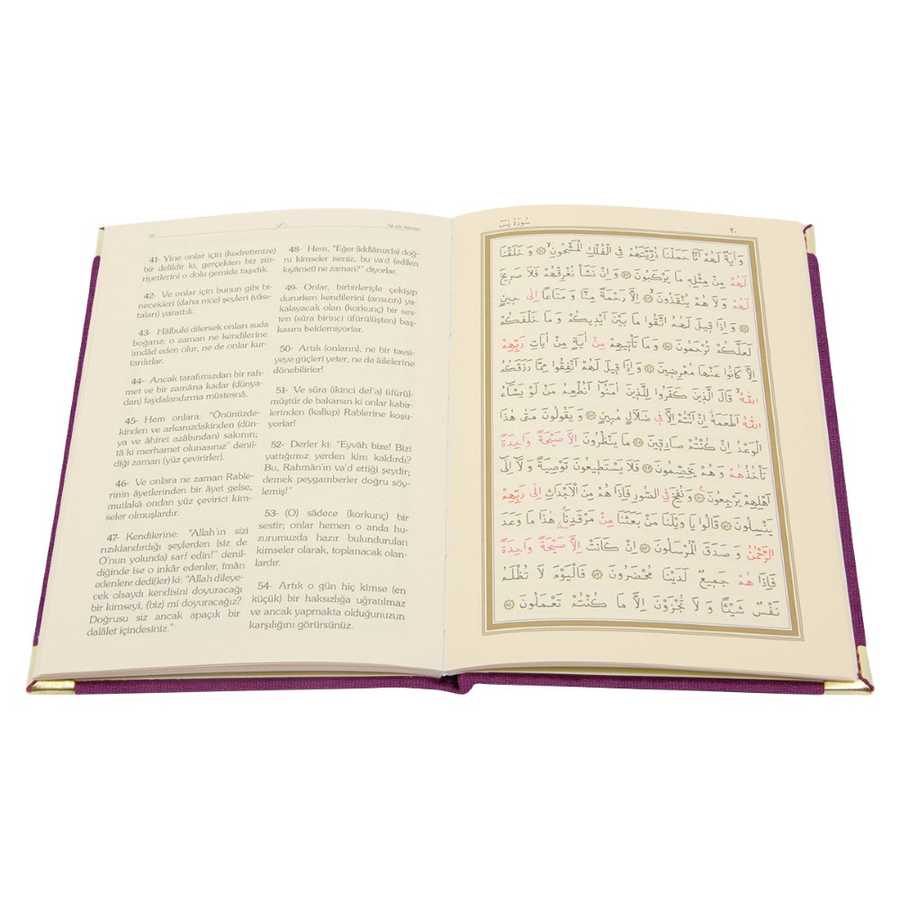 41- Yine onlar için (kudretimize)
bir delildir ki, gerçekten biz zür-
riyetlerini o dolu gemide taşıdık.
42- Ve onlar için bunun gibi bi-
necekleri (daha nice) şeyleri (vâsı-
taları) yarattık.
43- Hâlbuki dilersek onları suda
boğarız; o zaman ne kendilerine
imdâd eden olur, ne de onlar kur-
tarılırlar.
44- Ancak tarafımızdan bir rah-
met ve bir zamâna kadar (dünya-
dan) faydalandırma müstesnâ.
45- Hem onlara: "Önünüzde-
kinden ve arkanızdakinden (dün-
ya ve âhiret azâbından) sakının;
tâ ki merhamet olunasınız" denil-
diği zaman (yüz çevirirler).
46- Ve onlara ne zaman Rable-
rinin âyetlerinden bir âyet gelse,
mutlakâ ondan yüz çevirici kim-
seler olmuşlardır.
47- Kendilerine: "Allah'ın sizi
rızıklandırdığı şeylerden (siz de
O'nun yolunda) sarf edin!" denil-
diğinde ise o inkâr edenler, îmân
edenlere dedi(ler) ki: "Allah dileye-
cek olsaydı kendisini doyuracağı
bir kimseyi, (biz) mi doyuracağız?
Doğrusu siz ancak apaçık bir
dalâlet içindesiniz."
48- Hem, "Eğer (iddiânızda) doğ-
ru kimseler iseniz, bu va'd (edilen
kıyâmet) ne zaman?" diyorlar.
49- Onlar, birbirleriyle çekişip
dururken kendilerini (ansızın) ya-
kalayacak olan (korkunç) bir ses-
ten (sûra birinci üfürülüşten) baş-
kasını beklemiyorlar.
50- Artık (onların), ne bir tavsi-
yeye güçleri yeter, ne de âilelerine
dönebilirler!
51- Ve sûra (ikinci def'a) üfürül-
müştür de bakarsın ki onlar kabir-
lerinden (kalkıp) Rablerine koşu-
yorlar!
52- Derler ki: "Eyvâh bize! Bizi
yattığımız yerden kim kaldırdı?
Bu, Rahmân'ın va'd ettiği şeydir;
demek peygamberler doğru söy-
lemiş!"
53- (O) sâdece (korkunç) bir
sestir; onlar hemen o anda hu-
zurumuzda hazır bulundurulan
kimseler olarak, toplanacak olan-
lardır.
54- Artık o gün hiç kimse (en
küçük) bir haksızlığa uğratılmaz
ve ancak yapmakta olduğunuzun
karşılığını görürsünüz.
سُورَةُ يٰسٓ
وَاٰيَةٌ لَهُمْ اَنَّا حَمَلْنَا ذُرِّيَّتَهُمْ فِي الْفُلْكِ الْمَشْحُونِ ۞ وَخَلَقْنَا
لَهُمْ مِنْ مِثْلِهِ مَا يَرْكَبُونَ ۞ وَاِنْ نَشَأْ نُغْرِقْهُمْ فَلَا صَرِيخَ
لَهُمْ وَلَا هُمْ يُنْقَذُونَ ۞ اِلَّا رَحْمَةً مِنَّا وَمَتَاعًا اِلٰى حِينٍ
۞ وَاِذَا قِيلَ لَهُمُ اتَّقُوا مَا بَيْنَ اَيْدِيكُمْ وَمَا خَلْفَكُمْ
لَعَلَّكُمْ تُرْحَمُونَ ۞ وَمَا تَأْتِيهِمْ مِنْ اٰيَةٍ مِنْ اٰيَاتِ رَبِّهِمْ
اِلَّا كَانُوا عَنْهَا مُعْرِضِينَ ۞ وَاِذَا قِيلَ لَهُمْ اَنْفِقُوا مِمَّا رَزَقَكُمُ
اللّٰهُ قَالَ الَّذِينَ كَفَرُوا لِلَّذِينَ اٰمَنُوا اَنُطْعِمُ مَنْ لَوْ يَشَاءُ
اللّٰهُ اَطْعَمَهُ اِنْ اَنْتُمْ اِلَّا فِي ضَلَالٍ مُبِينٍ ۞ وَيَقُولُونَ مَتٰى هٰذَا
الْوَعْدُ اِنْ كُنْتُمْ صَادِقِينَ ۞ مَا يَنْظُرُونَ اِلَّا صَيْحَةً وَاحِدَةً
تَأْخُذُهُمْ وَهُمْ يَخِصِّمُونَ ۞ فَلَا يَسْتَطِيعُونَ تَوْصِيَةً وَلَا اِلٰى
اَهْلِهِمْ يَرْجِعُونَ ۞ وَنُفِخَ فِي الصُّورِ فَاِذَا هُمْ مِنَ الْاَجْدَاثِ اِلٰى رَبِّهِمْ
يَنْسِلُونَ ۞ قَالُوا يَا وَيْلَنَا مَنْ بَعَثَنَا مِنْ مَرْقَدِنَا هٰذَا مَا وَعَدَ
الرَّحْمٰنُ وَصَدَقَ الْمُرْسَلُونَ ۞ اِنْ كَانَتْ اِلَّا صَيْحَةً وَاحِدَةً
فَاِذَا هُمْ جَمِيعٌ لَدَيْنَا مُحْضَرُونَ ۞ فَالْيَوْمَ لَا تُظْلَمُ
نَفْسٌ شَيْئًا وَلَا تُجْزَوْنَ اِلَّا مَا كُنْتُمْ تَعْمَلُونَ ۞